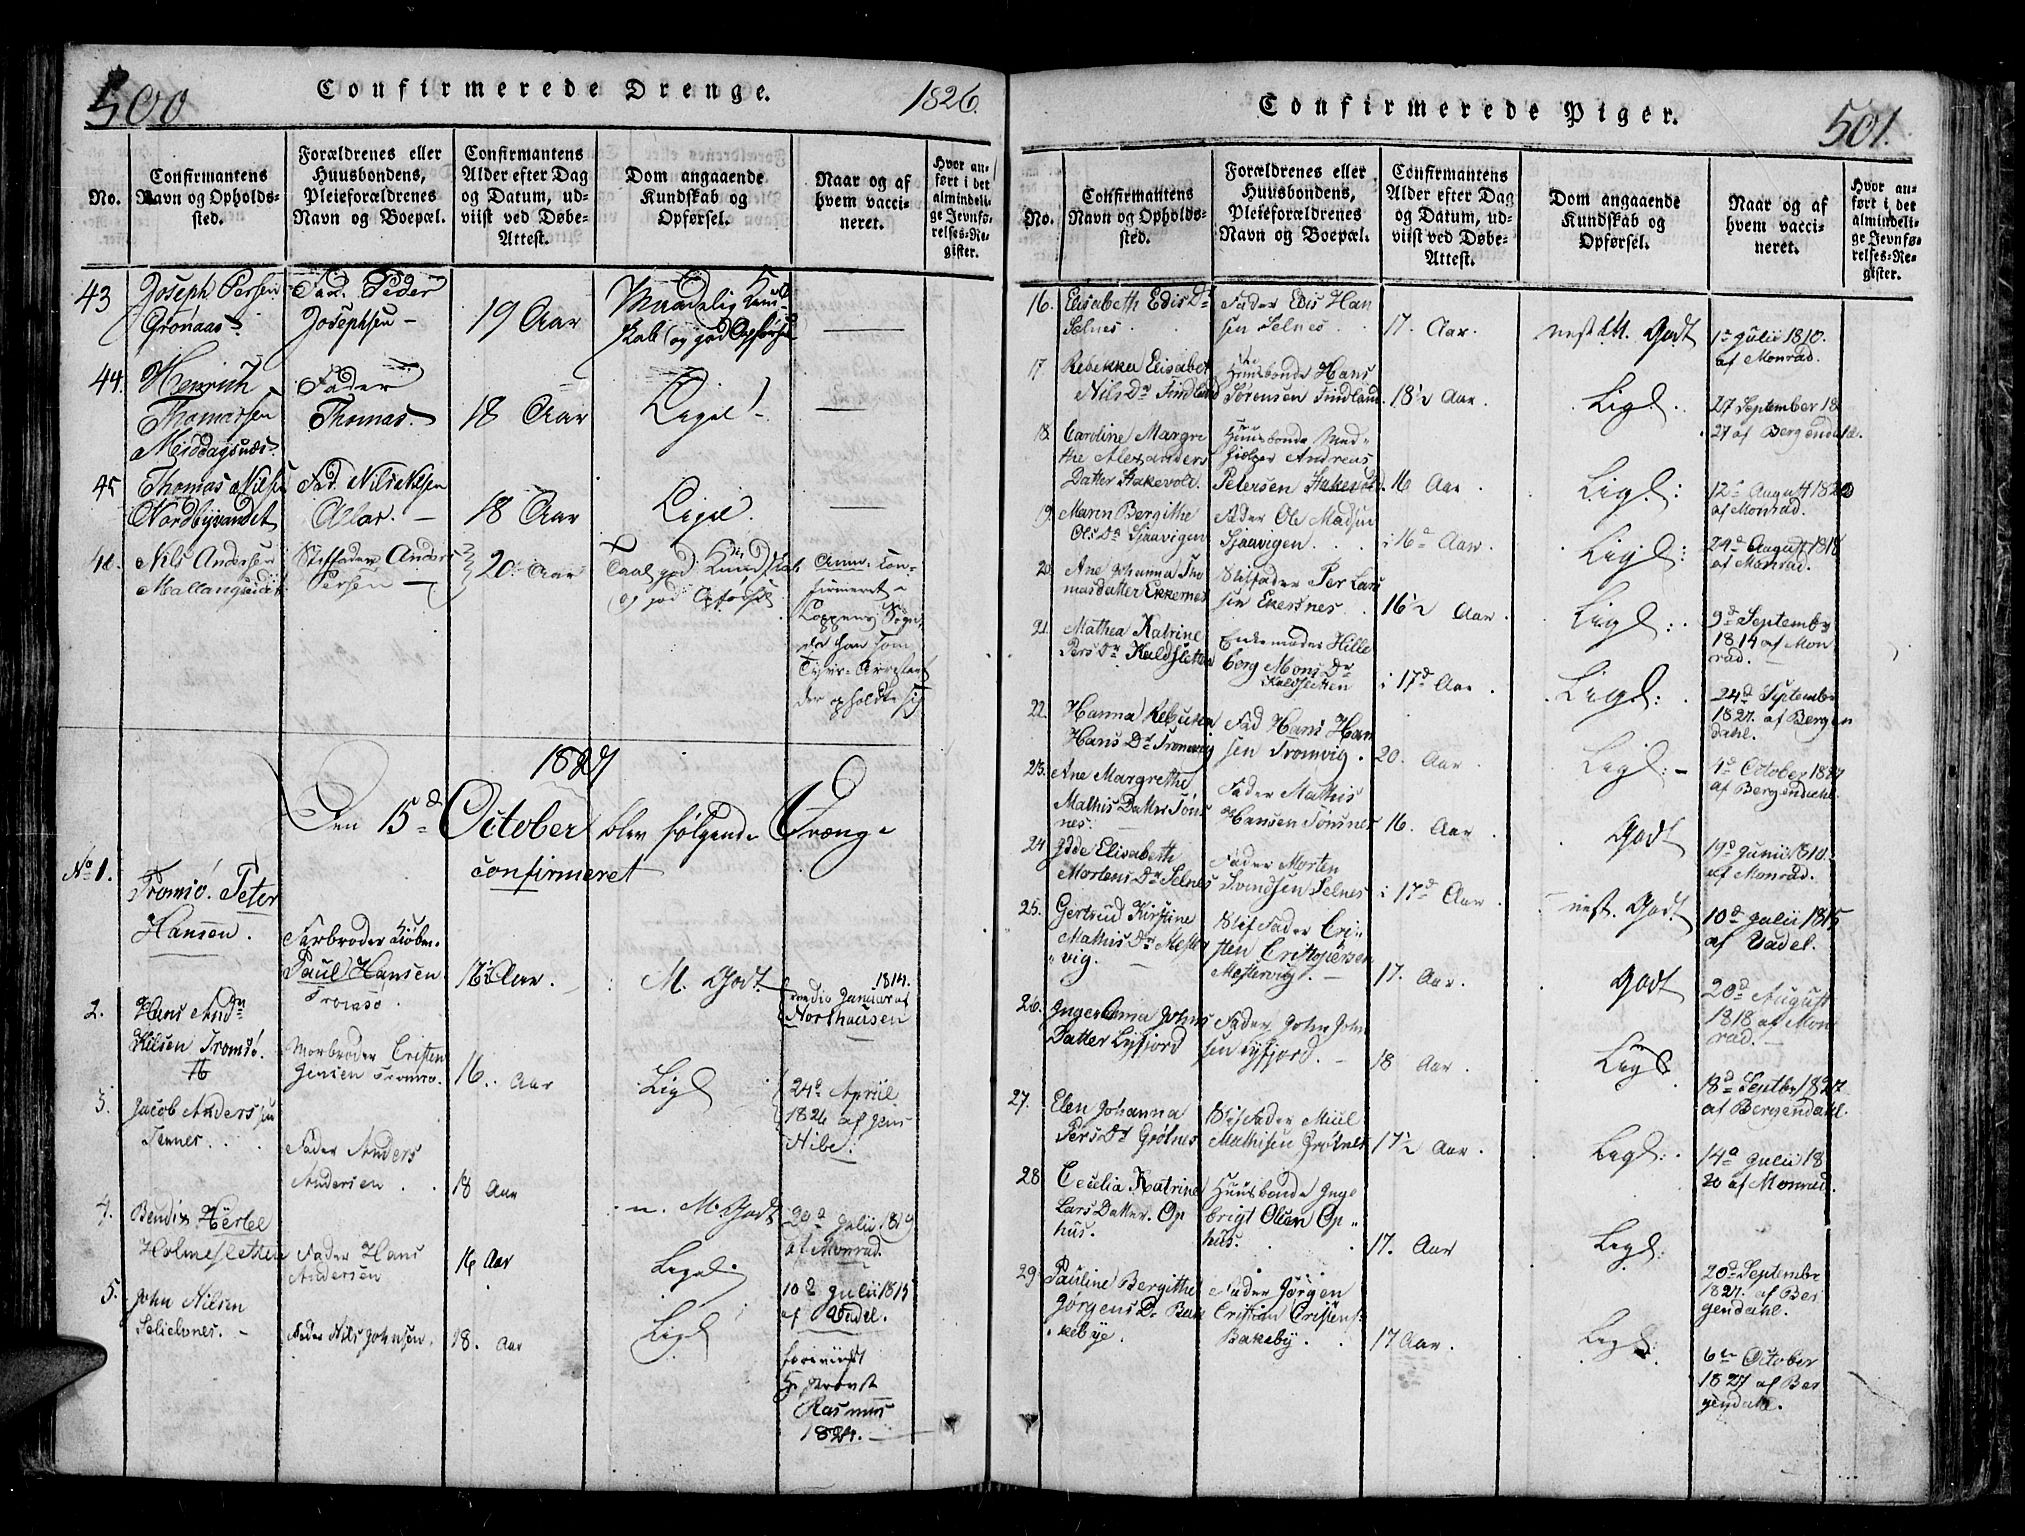 500
Confirmerede Drenge.
1826.
No.
Confirmantens
Navn og Opholds-
sted.
Forældrenes eller
Huusbondens,
Pleieforældrenes
Navn og Boepæl.
Confirmantens
Alder efter Dag
og Datum, ud-
viist ved Døbe-
Attest.
Dom angaaende
Kundskab og
Opførsel.
Naar og af
hvem vacci-
neret.
Hvor an-
ført i det
almindeli-
ge Jevnfø-
relses-Re-
gister.
43
Joseph Persen
Grønaas
Fad. Peder
Josephsen
19 Aar
Maadelig Kund-
skab og god Opførsel
44.
Henrich
Thomassen
Middagsnæs
Fader
Thomas.
18 Aar
Ligel
45
Thomas Nilsen
Nordbyvandet
Fad. Nils Nilsen
18 Aar
Ligel.
Nils Andersen
Mallangseidet
Stiffader Anders
Persen
20 Aar
Taal. god Kundskab
og god Opførsel
Anm. con-
firmeret
Koppervig Sogn
der han som
Tyvs-Arrestant
der opholdte sig
1827
Den 15d October blev følgende Dræng-
confirmeret
No 1.
Tromsö. Peter
Hansen.
Farbroder Kiöbm.
Paul Hansen
Tromsö.
16½ Aar.
M. Godt
1814.
Januar af
Northausen
2.
Hans And
Kilsen Tromsö.
Morbroder Cristen
Jensen Tromsö.
16. Aar
Ligl
24d Apriil
1826 af Jens
Nibe.
3.
Jacob Anderssen
Tennes.
Fader Anders
Andersen.
18 Aar
n. M. Godt
29d Julii 1819
af Monrad.
4.
Bendix Hertel
Holmesletten
Fader Hans
Andersen
16 Aar
Ligel
10d Julii 1815
af Wadel.
5.
John Nilsen
Selielvnes.
Fader Nils Johnsen
18. Aar
Ligl
foreviist
Hr Provst
Rasmus
1824.
Confirmerede Piger.
501.
No.
Confirmantens
Navn og Opholds-
sted.
Forældrenes eller
Huusbondens,
Pleieforældrenes
Navn og Boepæl.
Confirmantens
Alder efter Dag
og Datum, ud-
viist ved Døbe-
Attest.
Dom angaaende
Kundskab og
Opførsel.
Naar og af
hvem vacci-
neret.
Hvor an-
ført i det
almindeli-
ge Jevnfø-
relses-Re-
gister.
16.
Elisabeth Edis Dr
Selnes.
Fader Edis Han
sen Selnes
17. Aar.
nest M. Godt
1ste Julii 1810.
af Monrad.
17
Rebekka Elisabet
Nils Dr Findland
Huusbonde Hans
Sørensen Findland
18½ Aar.
Ligl.
27 September 18
27 af Bergendahl.
18.
Caroline Margre
the Alexanders
Datter Hakevold.
Huusbonde Med-
hielper Andreas
Petersen Hakevold.
16 Aar
Ligl:
12te August 1820
af Monrad.
19
Maren Bergithe
Ols Dr Sjaavigen
Fader Ole Madsen
Sjaavigen.
i 16d Aar.
Ligl:
24d August 1818
af Monrad.
20
Ane Johanna Tho
masdatter Ekkernes
Stiffader Per Lars
sen Ekesnes.
16½ Aar
Ligl:
9d Septembr
1814 af Mon
rad.
21.
Mathea Katrine
Pers Dr Kaldsletten
Enkemoder Hille
borg Mons Dr
Kaldsletten
i 17d Aar
Ligl:
24d Septembr
1827. af Bergen
dahl.
22.
Hanna Rebekka
Hans Dr Tromvig
Fad Hans Han
sen Tromvig.
20. Aar
Ligl:
1d October 1827
af Bergendahl.
23.
Ane Margrethe
Mathis Datter Töns
nes.
Fader Mathis
Hansen Tönsnes
16. Aar
Godt
19d Junii 1810.
af Monrad.
24
Ydde Elisabeth
Mortens Dr Selnes
Fader Morten
Svendsen Selnes
i 17d Aar
nest. Godt
10d Julii 1815
af Vadel.
25.
Gertrud Kirstine
Mathis Dr Mester
vig.
Stif Fader Cri-
sten Cristopersen
Mestervig.
17. Aar.
Godt
20d August
1818 af Mon
rad.
26.
Inger Anna Johns
Datter Lyfjord
Fader John John
sen Lyfjord.
18 Aar
Ligl
18d Septbr 1827.
af Bergendahl.
27.
Elen Johanna
Pers Dr Grötnes
Stif Fader Miil
Mathisen Grötnes
17½ Aar.
Ligl:
14d Julii 18
20 af Monrad.
28
Cecelia Katrine
Lars Datter. Op
hus.
Huusbonde Inge
brigt Olsen Op-
hus.
17. Aar
Ligl:
20d Septembr
1827. af Ber
gendahl.
29
Pauline Bergithe
Jørgens Dr Bak
kebye.
Fader Jørgen
Cristian Cristens.
Bakeby.
17 Aar.
Ligl:
6te October
1827 af Ber
gendahl.